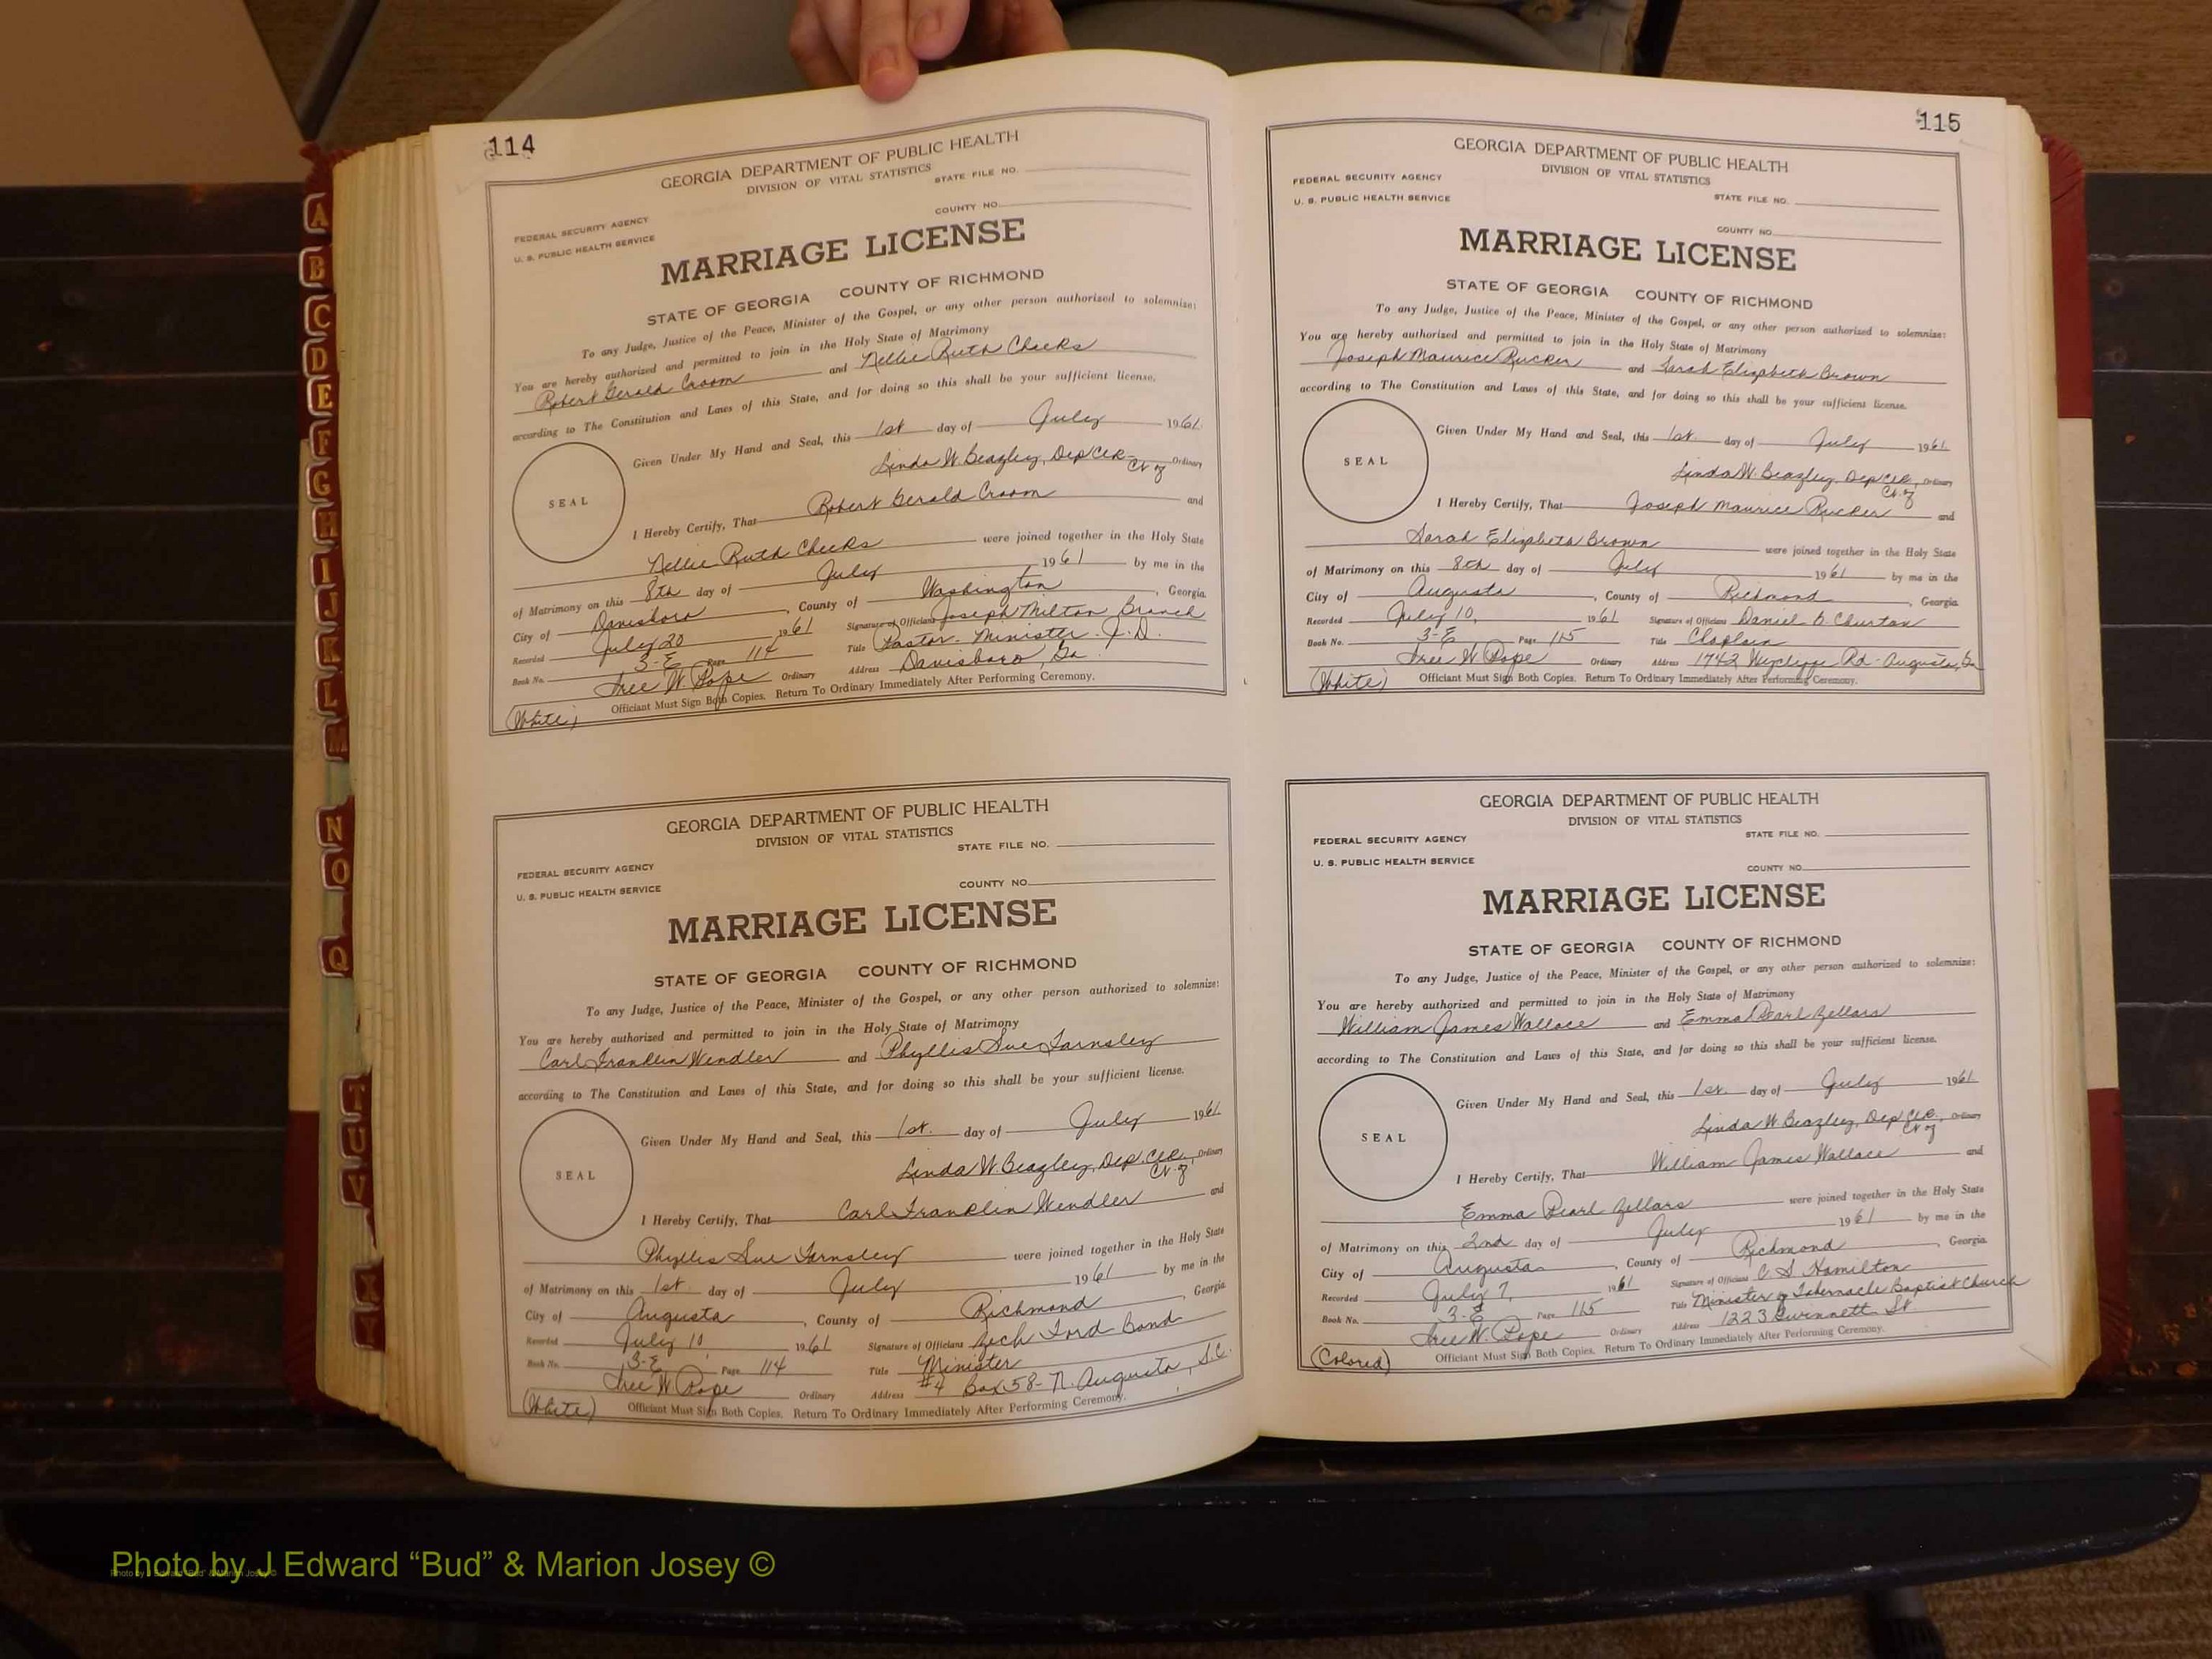 114
GEORGIA DEPARTMENT OF PUBLIC HEALTH
DIVISION OF VITAL STATISTICS
STATE FILE NO.
FEDERAL SECURITY AGENCY
COUNTY NO.
U. S. PUBLIC HEALTH SERVICE
MARRIAGE LICENSE
STATE OF GEORGIA COUNTY OF RICHMOND
To any Judge, Justice of the Peace, Minister of the Gospel, or any other person authorized to solemnize:
You are hereby authorized and permitted to join in the Holy State of Matrimony
Robert Gerald Croom and Nellie Ruth Cheeks
according to The Constitution and Laws of this State, and for doing so this shall be your sufficient license.
Given Under My Hand and Seal, this 1st day of July 1961
Linda W. Beazley, Dep Clk Ct of Ordinary
SEAL
I Hereby Certify, That Robert Gerald Croom and
Nellie Ruth Cheeks were joined together in the Holy State
of Matrimony on this 8th day of July 1961 by me in the
City of Davisboro, County of Washington, Georgia.
Recorded July 20 1961 Signature of Officiant Joseph Milton Branch
Book No. 3-E Page 114 Title Pastor - Minister - J.D.
Tree W Pope Ordinary Address Davisboro, Ga.
(White) Officiant Must Sign Both Copies. Return To Ordinary Immediately After Performing Ceremony.
GEORGIA DEPARTMENT OF PUBLIC HEALTH
DIVISION OF VITAL STATISTICS
STATE FILE NO.
FEDERAL SECURITY AGENCY
COUNTY NO.
U. S. PUBLIC HEALTH SERVICE
MARRIAGE LICENSE
STATE OF GEORGIA COUNTY OF RICHMOND
To any Judge, Justice of the Peace, Minister of the Gospel, or any other person authorized to solemnize:
You are hereby authorized and permitted to join in the Holy State of Matrimony
Carl Franklin Wendler and Phyllis Sue Farnsley
according to The Constitution and Laws of this State, and for doing so this shall be your sufficient license.
Given Under My Hand and Seal, this 1st. day of July 1961
Linda W. Beazley, Dep. Clk. Ct. of Ordinary
SEAL
I Hereby Certify, That Carl Franklin Wendler and
Phyllis Sue Farnsley were joined together in the Holy State
of Matrimony on this 1st day of July 1961 by me in the
City of Augusta, County of Richmond, Georgia.
Recorded July 10, 1961 Signature of Officiant Zech Ford Bond
Book No. 3-E Page 114 Title Minister
Tree W Pope Ordinary Address #4 Box 58 - N. Augusta, S.C.
(White) Officiant Must Sign Both Copies. Return To Ordinary Immediately After Performing Ceremony.
115
GEORGIA DEPARTMENT OF PUBLIC HEALTH
DIVISION OF VITAL STATISTICS
FEDERAL SECURITY AGENCY
STATE FILE NO.
U. S. PUBLIC HEALTH SERVICE
COUNTY NO.
MARRIAGE LICENSE
STATE OF GEORGIA COUNTY OF RICHMOND
To any Judge, Justice of the Peace, Minister of the Gospel, or any other person authorized to solemnize:
You are hereby authorized and permitted to join in the Holy State of Matrimony
Joseph Maurice Rucker and Sarah Elizabeth Brown
according to The Constitution and Laws of this State, and for doing so this shall be your sufficient license.
Given Under My Hand and Seal, this 1st. day of July 1961
Linda W. Beazley, Dep Clk, Ct. of Ordinary
SEAL
I Hereby Certify, That Joseph Maurice Rucker and
Sarah Elizabeth Brown were joined together in the Holy State
of Matrimony on this 8th day of July 1961 by me in the
City of Augusta, County of Richmond, Georgia
Recorded July 10, 1961 Signature of Officiant Daniel B.
Book No. 3-E Page 115 Title Chaplain
Tree W Pope Ordinary Address 1742 Wycliffe Rd - Augusta, Ga
(White) Officiant Must Sign Both Copies. Return To Ordinary Immediately After Performing Ceremony.
GEORGIA DEPARTMENT OF PUBLIC HEALTH
DIVISION OF VITAL STATISTICS
FEDERAL SECURITY AGENCY
STATE FILE NO.
U. S. PUBLIC HEALTH SERVICE
COUNTY NO.
MARRIAGE LICENSE
STATE OF GEORGIA COUNTY OF RICHMOND
To any Judge, Justice of the Peace, Minister of the Gospel, or any other person authorized to solemnize:
You are hereby authorized and permitted to join in the Holy State of Matrimony
William James Wallace and Emma Pearl Zellars
according to The Constitution and Laws of this State, and for doing so this shall be your sufficient license.
Given Under My Hand and Seal, this 1st. day of July 1961
Linda W Beazley, Dep Clk. Ct of Ordinary
SEAL
I Hereby Certify, That William James Wallace and
Emma Pearl Zellars were joined together in the Holy State
of Matrimony on this 2nd day of July 1961 by me in the
City of Augusta, County of Richmond, Georgia.
Recorded July 7, 1961 Signature of Officiant C S Hamilton
Book No. 3-E Page 115 Title Minister of Tabernacle Baptist Church
Tree W. Pope Ordinary Address 1223 Gwinnett St
(Colored) Officiant Must Sign Both Copies. Return To Ordinary Immediately After Performing Ceremony.
A
B
C
D
E
F
G
H
I
J
K
L
M
N
O
Q
T
U
V
X
Y
Photo by J Edward “Bud” & Marion Josey ©
Photo by J Edward “Bud” & Marion Josey ©